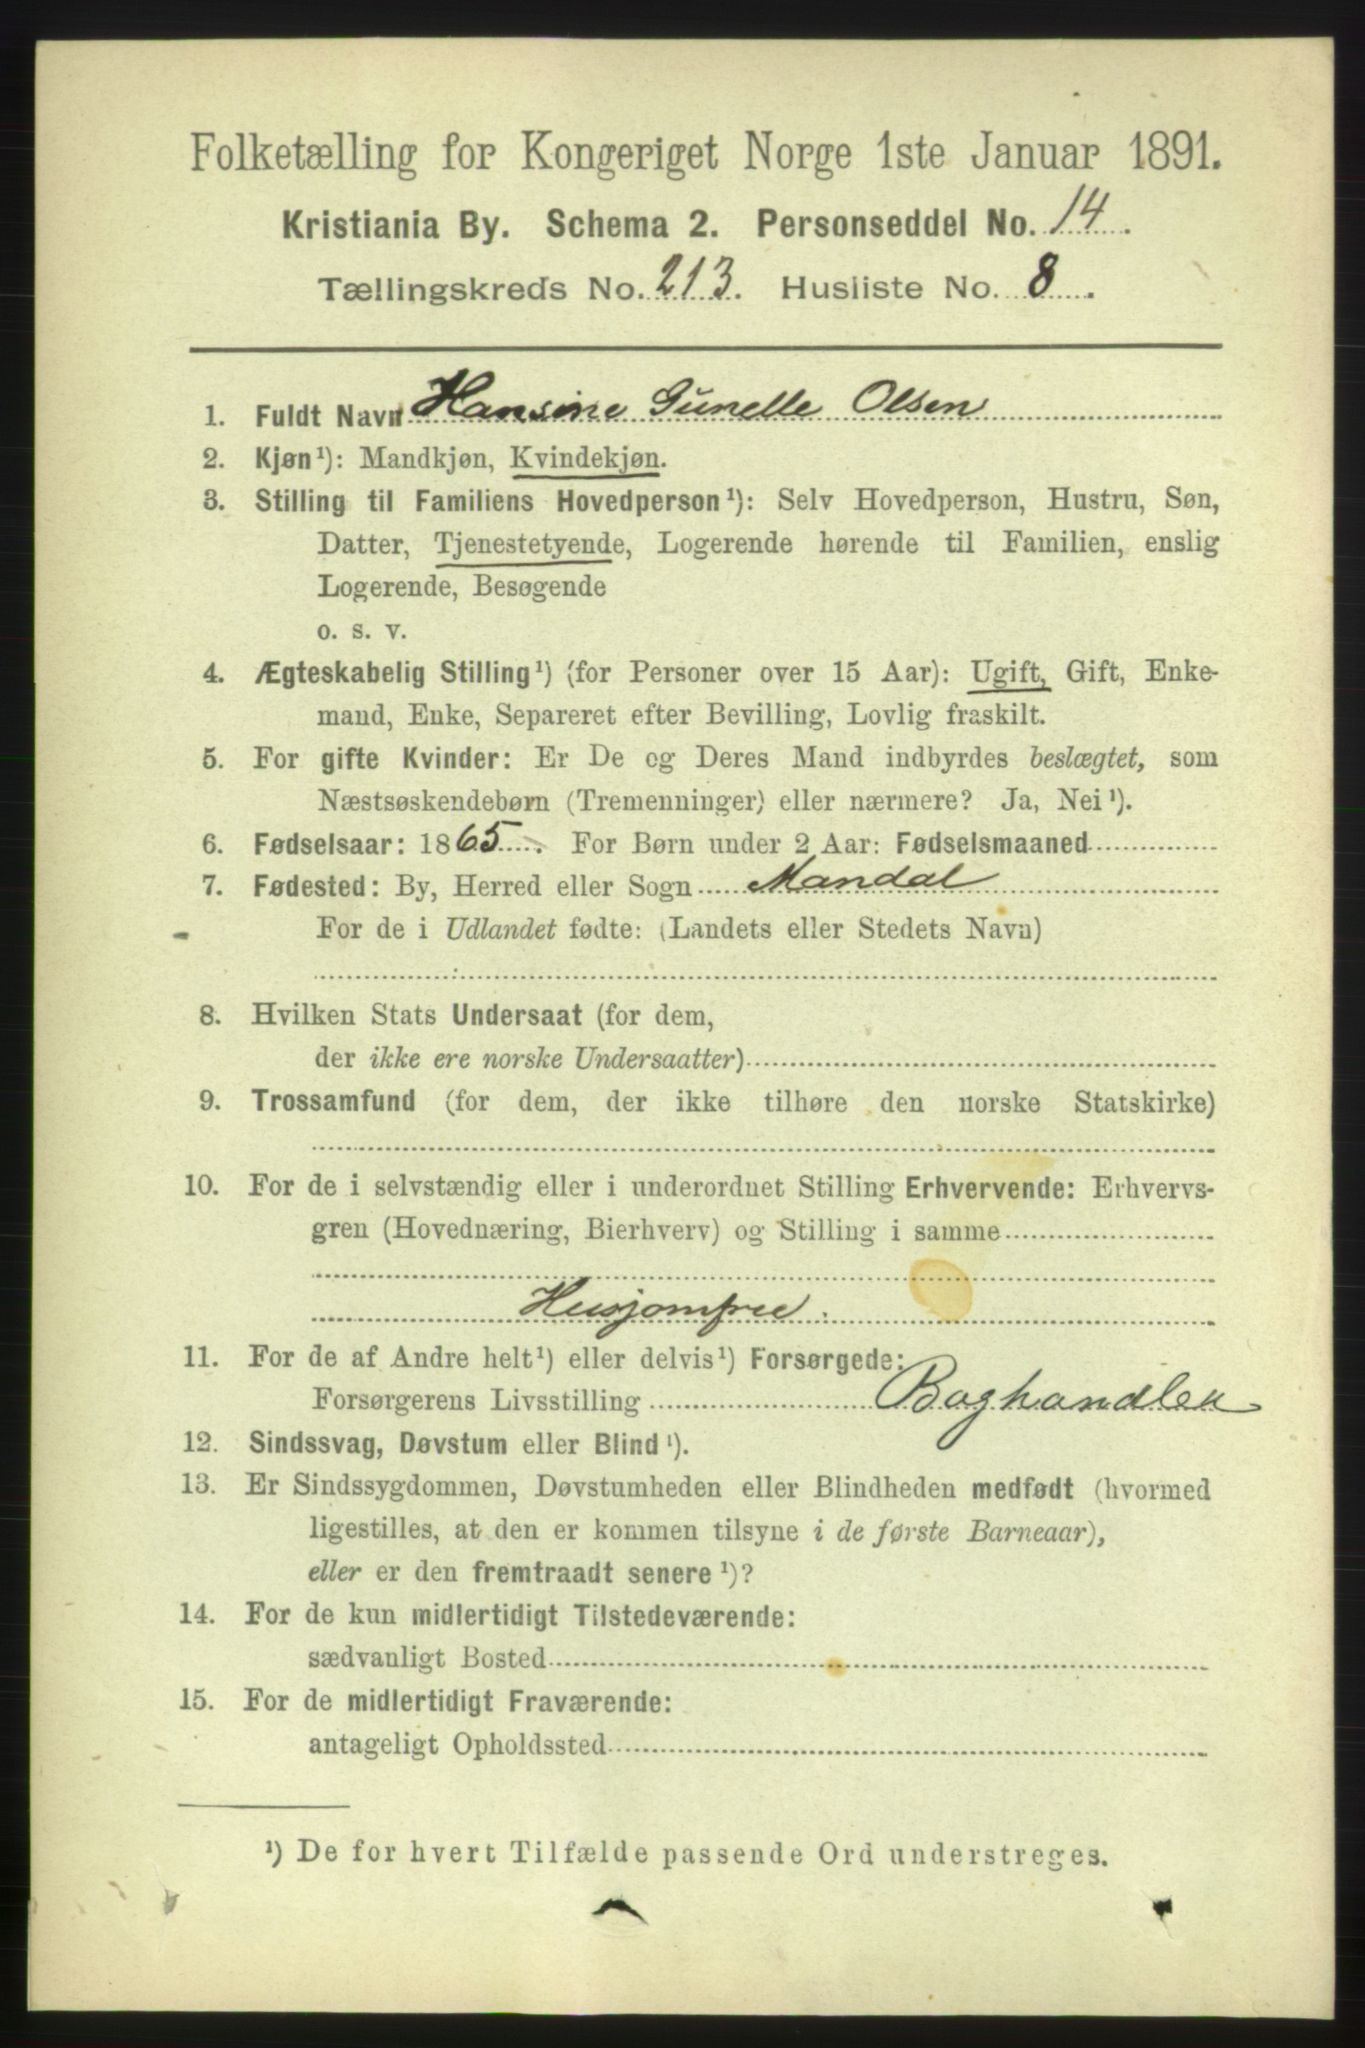 Folketælling for Kongeriget Norge 1ste Januar 1891.
Kristiania By. Schema 2. Personseddel No. 14.
Tællingskreds No. 213. Husliste No. 8.
1. Fuldt Navn Hansine Gunelle Olsen
2. Kjøn¹): Mandkjøn, Kvindekjøn.
3. Stilling til Familiens Hovedperson¹): Selv Hovedperson, Hustru, Søn,
Datter, Tjenestetyende, Logerende hørende til Familien, enslig
Logerende, Besøgende
o. s. v.
4. Ægteskabelig Stilling¹) (for Personer over 15 Aar): Ugift, Gift, Enke-
mand, Enke, Separeret efter Bevilling, Lovlig fraskilt.
5. For gifte Kvinder: Er De og Deres Mand indbyrdes beslægtet, som
Næstsøskendebørn (Tremenninger) eller nærmere? Ja, Nei¹).
6. Fødselsaar: 1865. For Børn under 2 Aar: Fødselsmaaned
7. Fødested: By, Herred eller Sogn Mandal
For de i Udlandet fødte: (Landets eller Stedets Navn)
8. Hvilken Stats Undersaat (for dem,
der ikke ere norske Undersaatter)
9. Trossamfund (for dem, der ikke tilhøre den norske Statskirke)
10. For de i selvstændig eller i underordnet Stilling Erhvervende: Erhvervs-
gren (Hovednæring, Bierhverv) og Stilling i samme
Husjomfru.
11. For de af Andre helt¹) eller delvis¹) Forsørgede:
Forsørgerens Livsstilling Boghandler
12. Sindssvag, Døvstum eller Blind¹).
13. Er Sindssygdommen, Døvstumheden eller Blindheden medfødt (hvormed
ligestilles, at den er kommen tilsyne i de første Barneaar),
eller er den fremtraadt senere¹)?
14. For de kun midlertidigt Tilstedeværende:
sædvanligt Bosted
15. For de midlertidigt Fraværende:
antageligt Opholdssted
¹) De for hvert Tilfælde passende Ord understreges.